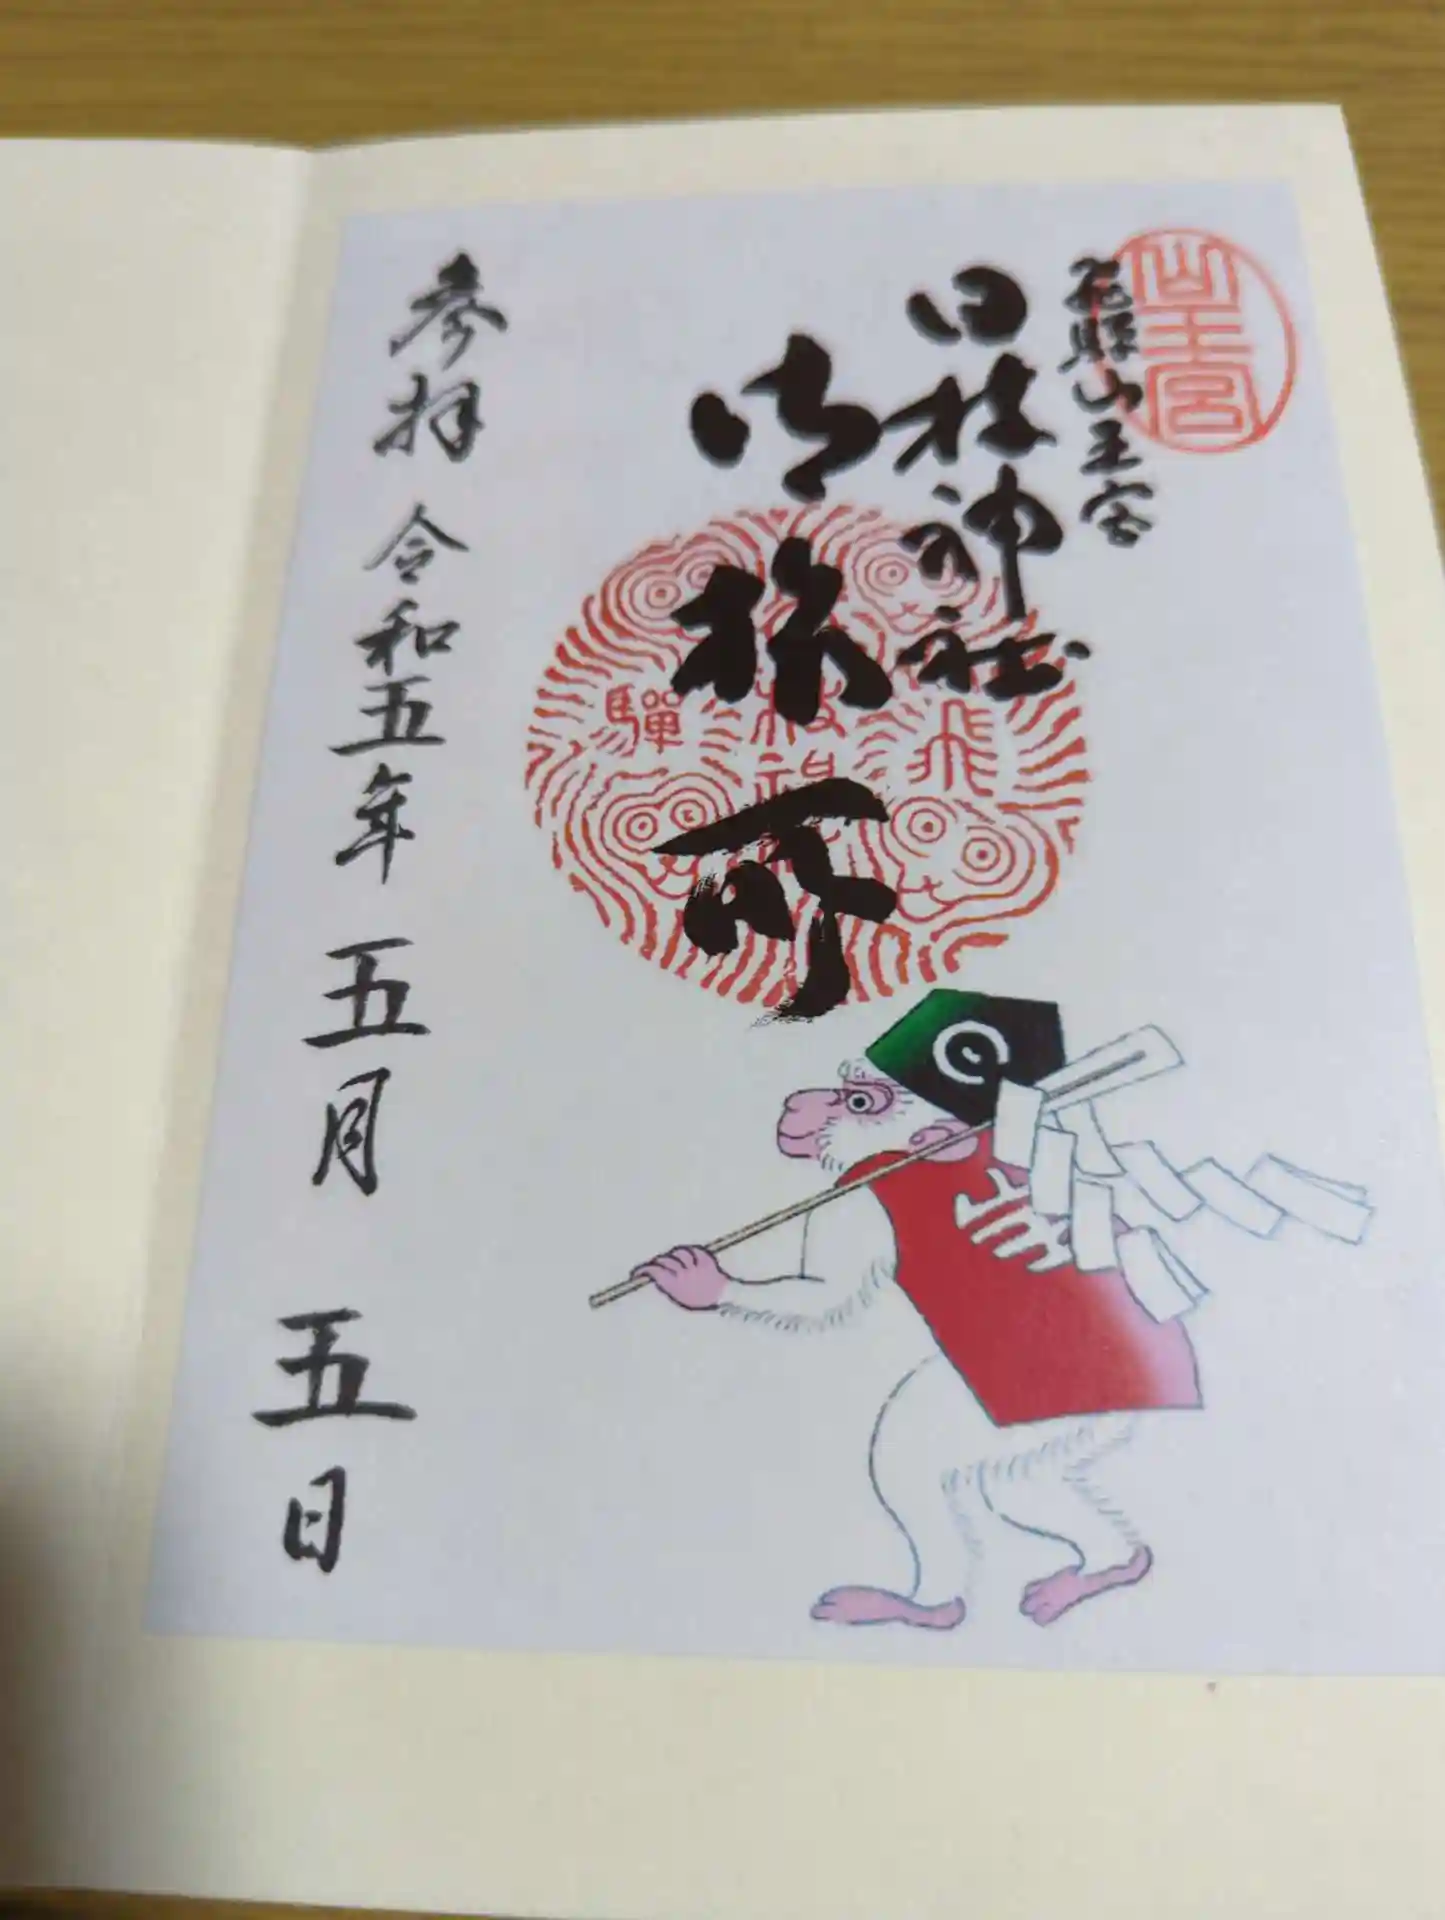 山王宮
飛騨山王宮
日枝神社
御旅所
飛驒
参拝 令和五年 五月 五日